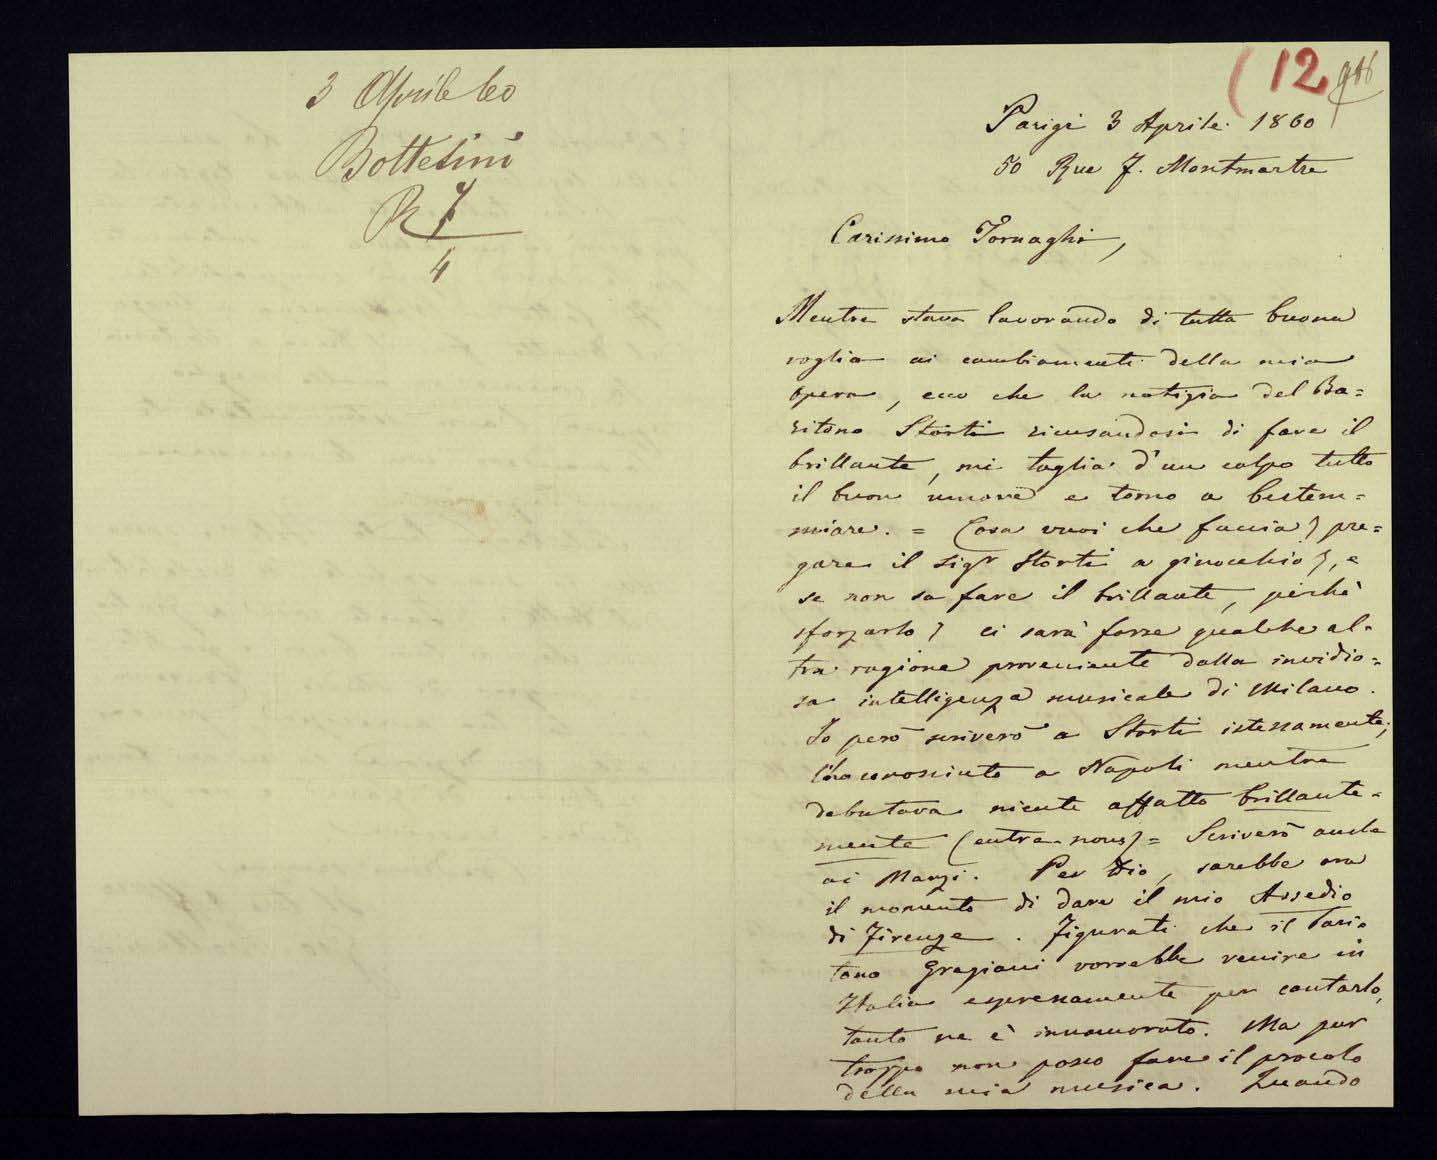 3 Aprile 60
Bottesini
R 7
4
(12
Parigi 3 Aprile. 1860
50 Rue f. Montmartre
Carissimo Tornaghi,
Mentre stava lavorando di tutta buona
voglia ai cambiamenti della mia
opera, ecco che la notizia del Ba=
ritono Storti ricusandosi di fare il
brillante, mi taglia d'un colpo tutto
il buon umore e torno a bestem=
miare. = Cosa vuoi che faccia? pre=
gare il Sigr Storti a ginocchio?, e
se non sa fare il brillante, perchè
sforzarlo? ci sarà forse qualche al=
tra ragione proveniente dalla invidio=
sa intelligenza musicale di Milano.
Io però scriverò a Storti istessamente;
l'ho conosciuto a Napoli mentre
debutava niente affatto brillante=
mente (entre-nous) = Scriverò anche
ai Marzi. Per Dio, sarebbe ora
il momento di dare il mio Assedio
di Firenze. Figurati che il Bari=
tono Graziani vorrebbe venire in
Italia espressamente per cantarlo,
tanto ne è innamorato. Ma pur
troppo non posso fare il procolo
della mia musica. Quando